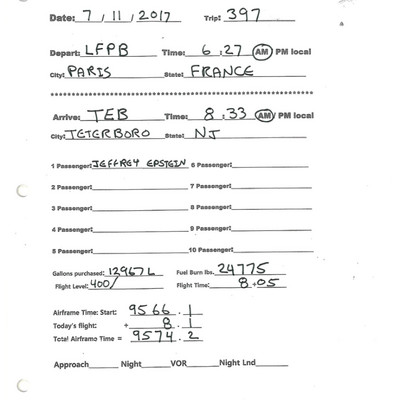 Date: 7 / 11 / 2017 Trip: 397
Depart: LFPB Time: 6 : 27 AM PM local
City: PARIS State: FRANCE
Arrive: TEB Time: 8 : 33 AM PM local
City: TETERBORO State: NJ
1 Passenger: JEFFREY EPSTEIN 6 Passenger:
2 Passenger: 7 Passenger:
3 Passenger: 8 Passenger:
4 Passenger: 9 Passenger:
5 Passenger: 10 Passenger:
Gallons purchased: 12967 L Fuel Burn lbs. 24775
Flight Level: 400/ Flight Time: 8 + 05
Airframe Time: Start: 9566 . 1
Today's flight: + 8 . 1
Total Airframe Time = 9574 . 2
Approach Night VOR Night Lnd